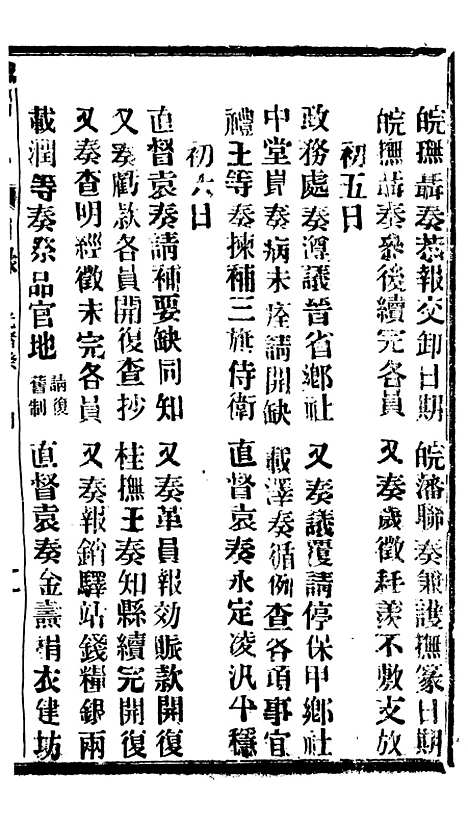 皖撫聶奏恭報交卸日期　皖藩聯奏兼護撫篆日期
皖撫聶奏參後續完各員　又奏歲徵耗羨不敷支放
初五日
政務處奏遵議晉省鄉社　又奏議覆請停保甲鄉社
中堂崑奏病未痊請開缺　載澤奏循例查各項事宜
禮王等奏揀補三旗侍衛　直督袁奏永定凌汛平穩
初六日
直督袁奏請補要缺同知　又奏革員報効賑款開復
又奏虧款各員開復查抄　桂撫王奏知縣續完開復
又奏查明經徵未完各員　又奏報銷驛站錢糧銀兩
載潤等奏祭品官地請復舊制　直督袁奏金壽捐衣建坊